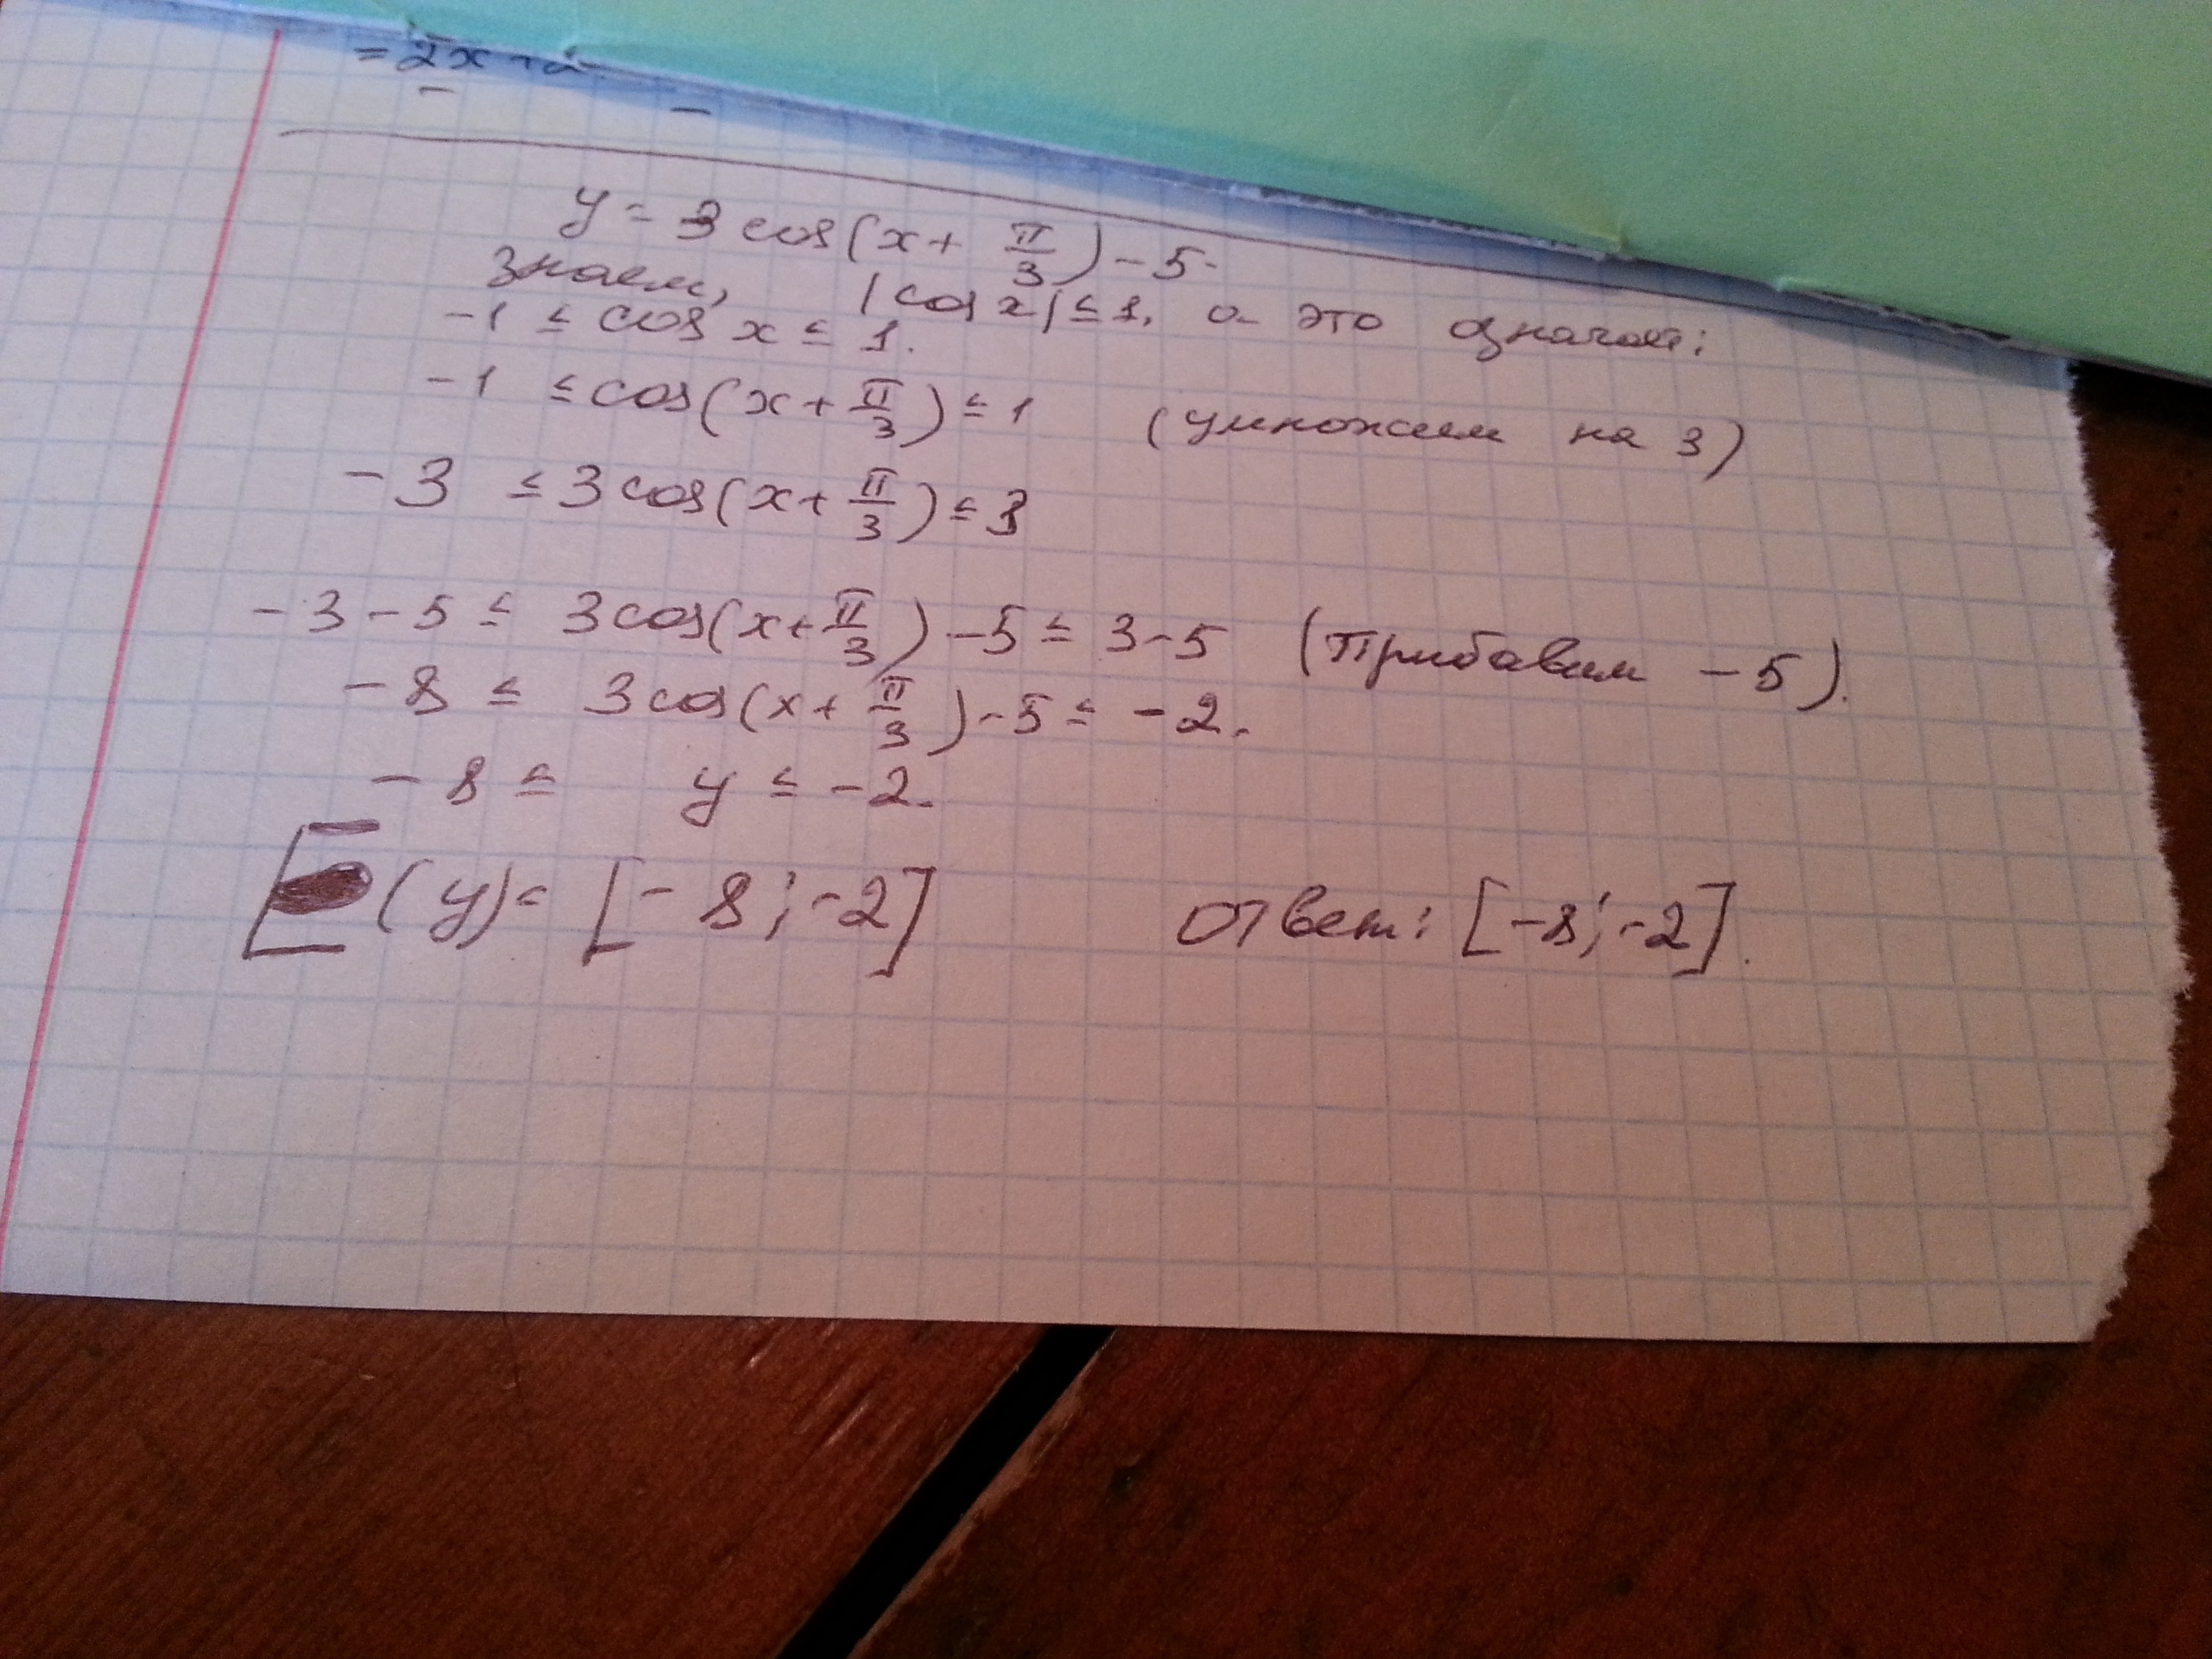 = 2x + 2
y = 3 cos(x + π/3) - 5.
Знаем, |cos x| ≤ 1, а это означает:
-1 ≤ cos x ≤ 1.
-1 ≤ cos(x + π/3) ≤ 1 (умножим на 3)
-3 ≤ 3 cos(x + π/3) ≤ 3
-3 - 5 ≤ 3 cos(x + π/3) - 5 ≤ 3 - 5 (прибавим -5).
-8 ≤ 3 cos(x + π/3) - 5 ≤ -2.
-8 ≤ y ≤ -2.
E(y) = [-8; -2] Ответ: [-8; -2].